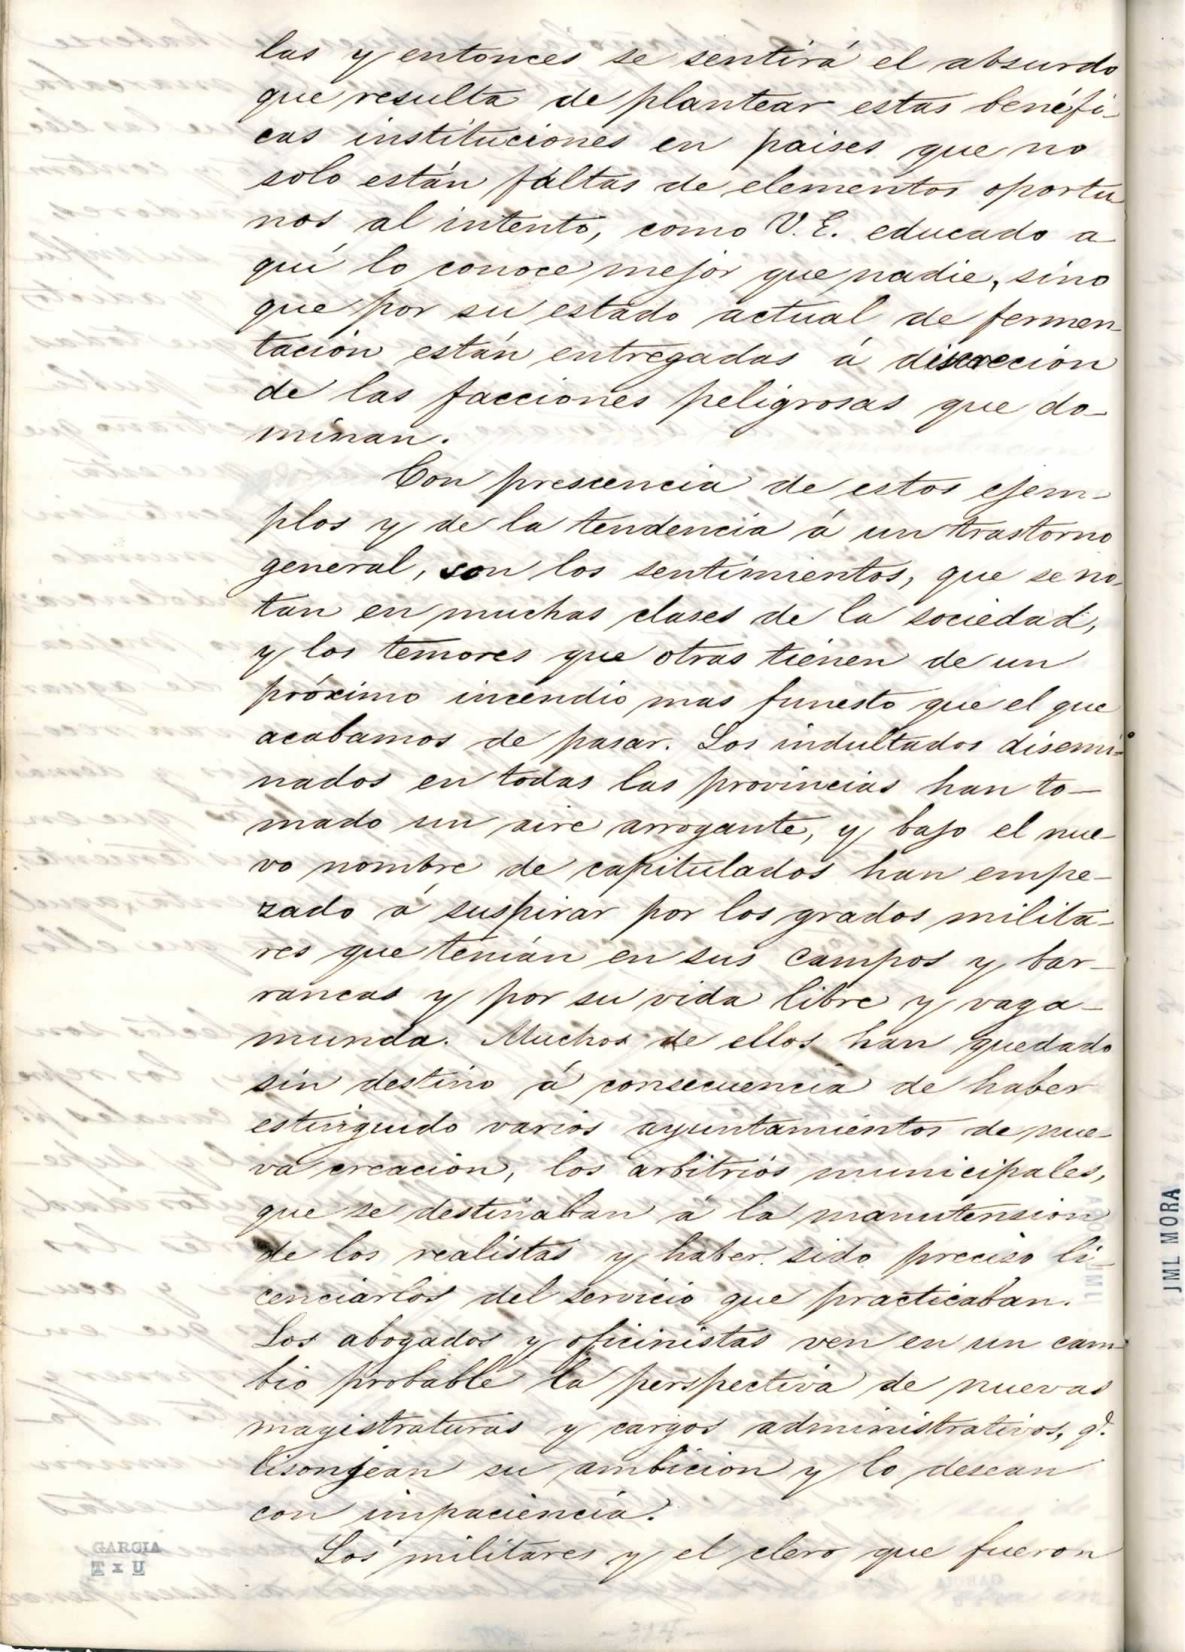 las y entonces se sentirá el absurdo
que resulta de plantear estas benéfi-
cas instituciones en paises que no
solo están faltas de elementos oportu
nos al intento, como V. E. educado a-
quí lo conoce mejor que nadie, sino
que por su estado actual de fermen-
tación están entregadas á discrecion
de las facciones peligrosas que do-
minan.
Con prescencia de estos ejem-
plos y de la tendencia á un trastorno
general, son los sentimientos, que se no-
tan en muchas clases de la sociedad,
y los temores que otras tienen de un
próximo incendio mas funesto que el que
acabamos de pasar. Los indultados disemi-
nados en todas las provincias han to-
mado un aire arrogante, y bajo el nue-
vo nombre de capitulados han empe-
zado á suspirar por los grados milita-
res que tenían en sus campos y bar-
rancas y por su vida libre y vaga-
munda. Muchos de ellos han quedado
sin destino á consecuencia de haber
estinguido varios ayuntamientos de nue-
va creacion, los arbitrios municipales,
que se destinaban á la manutension
de los realistas y haber sido preciso li-
cenciarlos del servicio que practicaban.
Los abogados y oficinistas ven en un cam-
bio probable la perspectiva de nuevas
magistraturas y cargos administrativos, q.e
lisonjean su ambicion y lo desean
con impaciencia.
Los militares y el clero que fueron
GARCIA
T x U
JML MORA